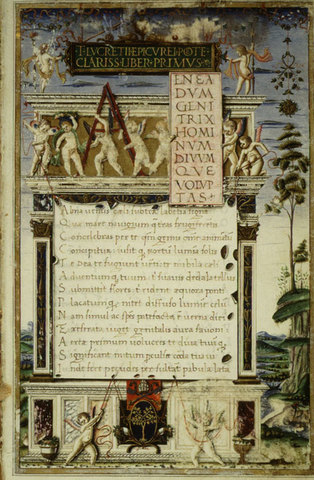 T·LVCRETII·EPICVREI·POTE·
CLARISS·LIBER·PRIMVS·
A
ENEA
DVM
GENI
TRIX
HOMI
NVM
DIVVM
QVE
VOLVP
TAS·
Alma venus celi subter labentia signa
Quae mare navigerum quae terras frugiferentis
Concelebras per te qm̃ genus omne animantũ
Concipitur visitq exortũ lumina solis
Te dea te fugiunt venti te nubila celi
Adventumq tuum t suavis dedala tellus
Submittit flores t rident aequora ponti
Placatumq nitet diffuso lumine celũ
Nam simul ac spẽs patefacta ẽ verna diei
Et reserata viget genitalis aura favoni
Aeriae primum volucres te diva tuũq
Significant initum perculse corda tua vi
Inde fere pecudes persultãt pabula laeta